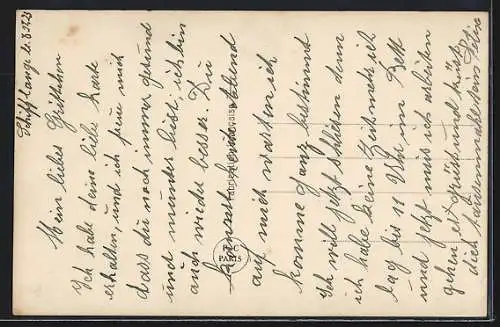 Schifflange le 8.12.28
Mein liebes Gritchen
Ich habe deine liebe Karte
erhalten, und ich freue mich
dass du noch immer gesund
und munder bist, ich bin
auch wieder besser. Du
kannst heute abend
auf mich warten ich
komme ganz bestimmt
Ich will jetzt schließen denn
ich habe keine Zeit mehr ich
lag bis 11 Uhr im Bett
und jetzt mus ich arbeiten
gehen es grüst und küst
dich tausenmahl dein
PC
PARIS